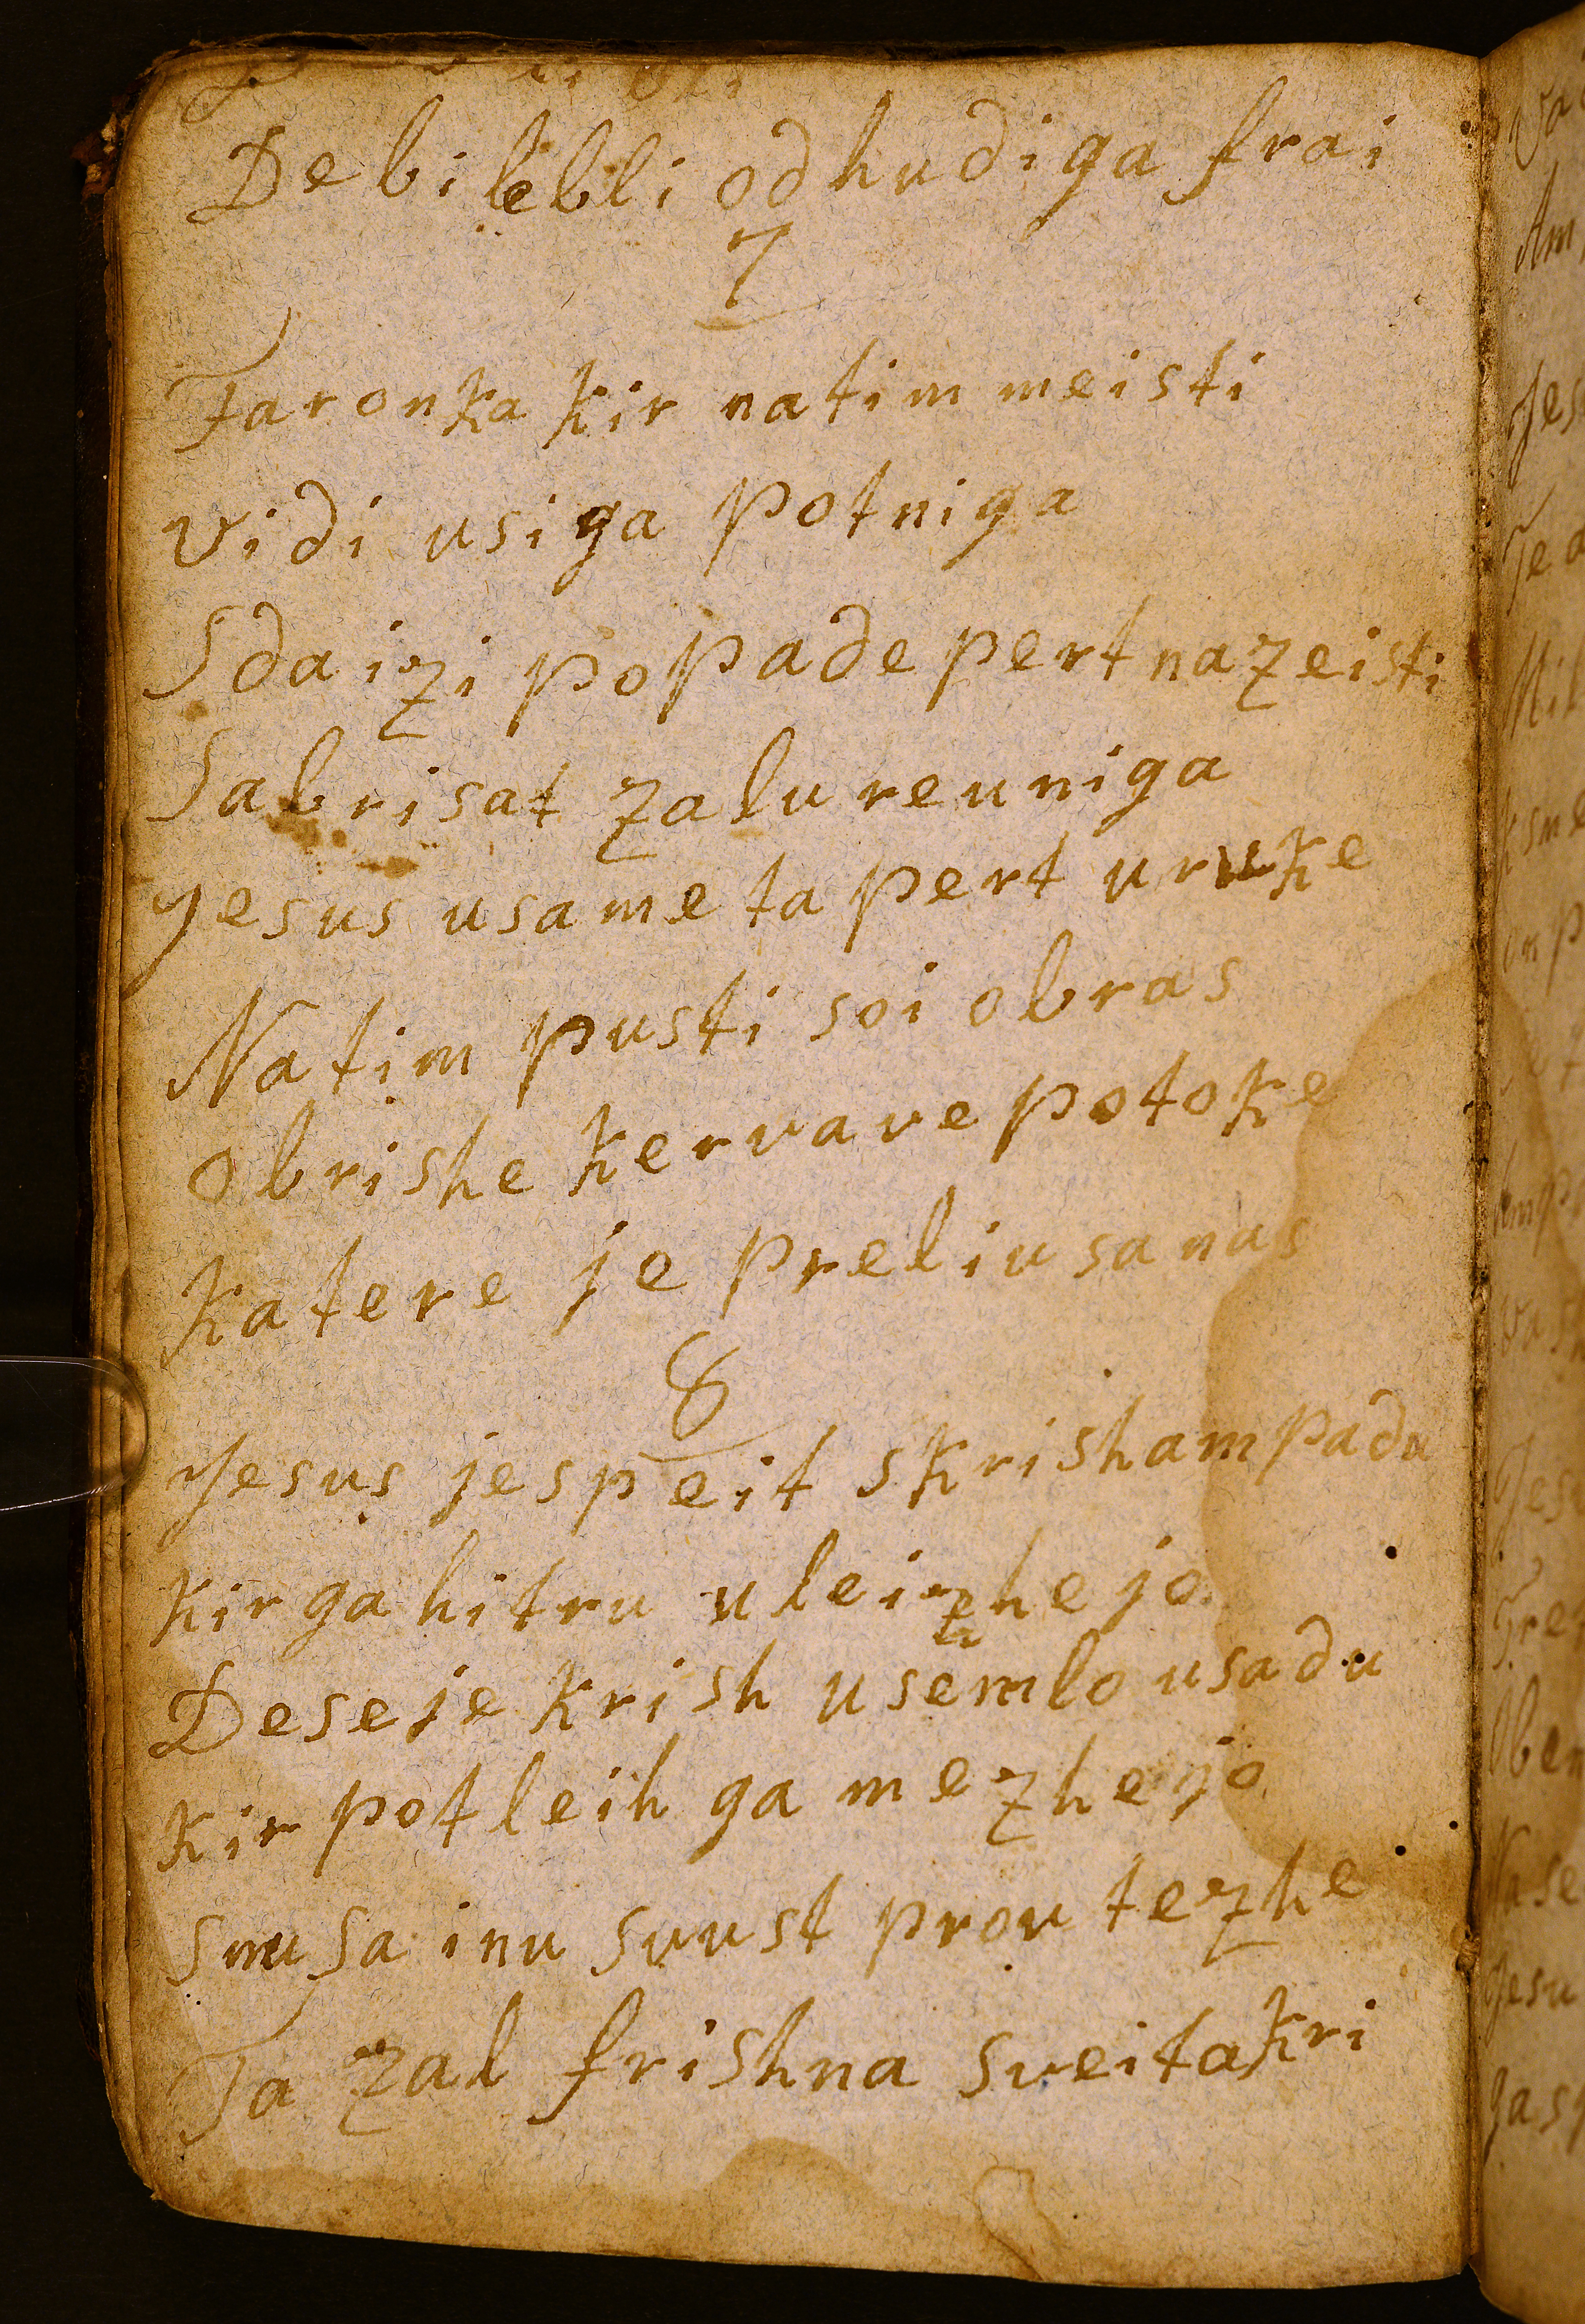 De bi lebli od hudiga frai
7
Faronka kir na tim meisti
vidi usiga potniga
Sda izi popade pert na zeisti
Sabrisat zalu reuniga
Jesus usame ta pert u ruke
Na tim pusti soi obras
obrishe kervave potoke
Katere je preliu sa nas
8
Jesus je speit skrisham padu
kir ga hitru uleizhejo
De se je krish usemlo usadu
kir potleih ga mezhejo
smusa inu suust prou tezhe
Ta zal frishna sveita kri